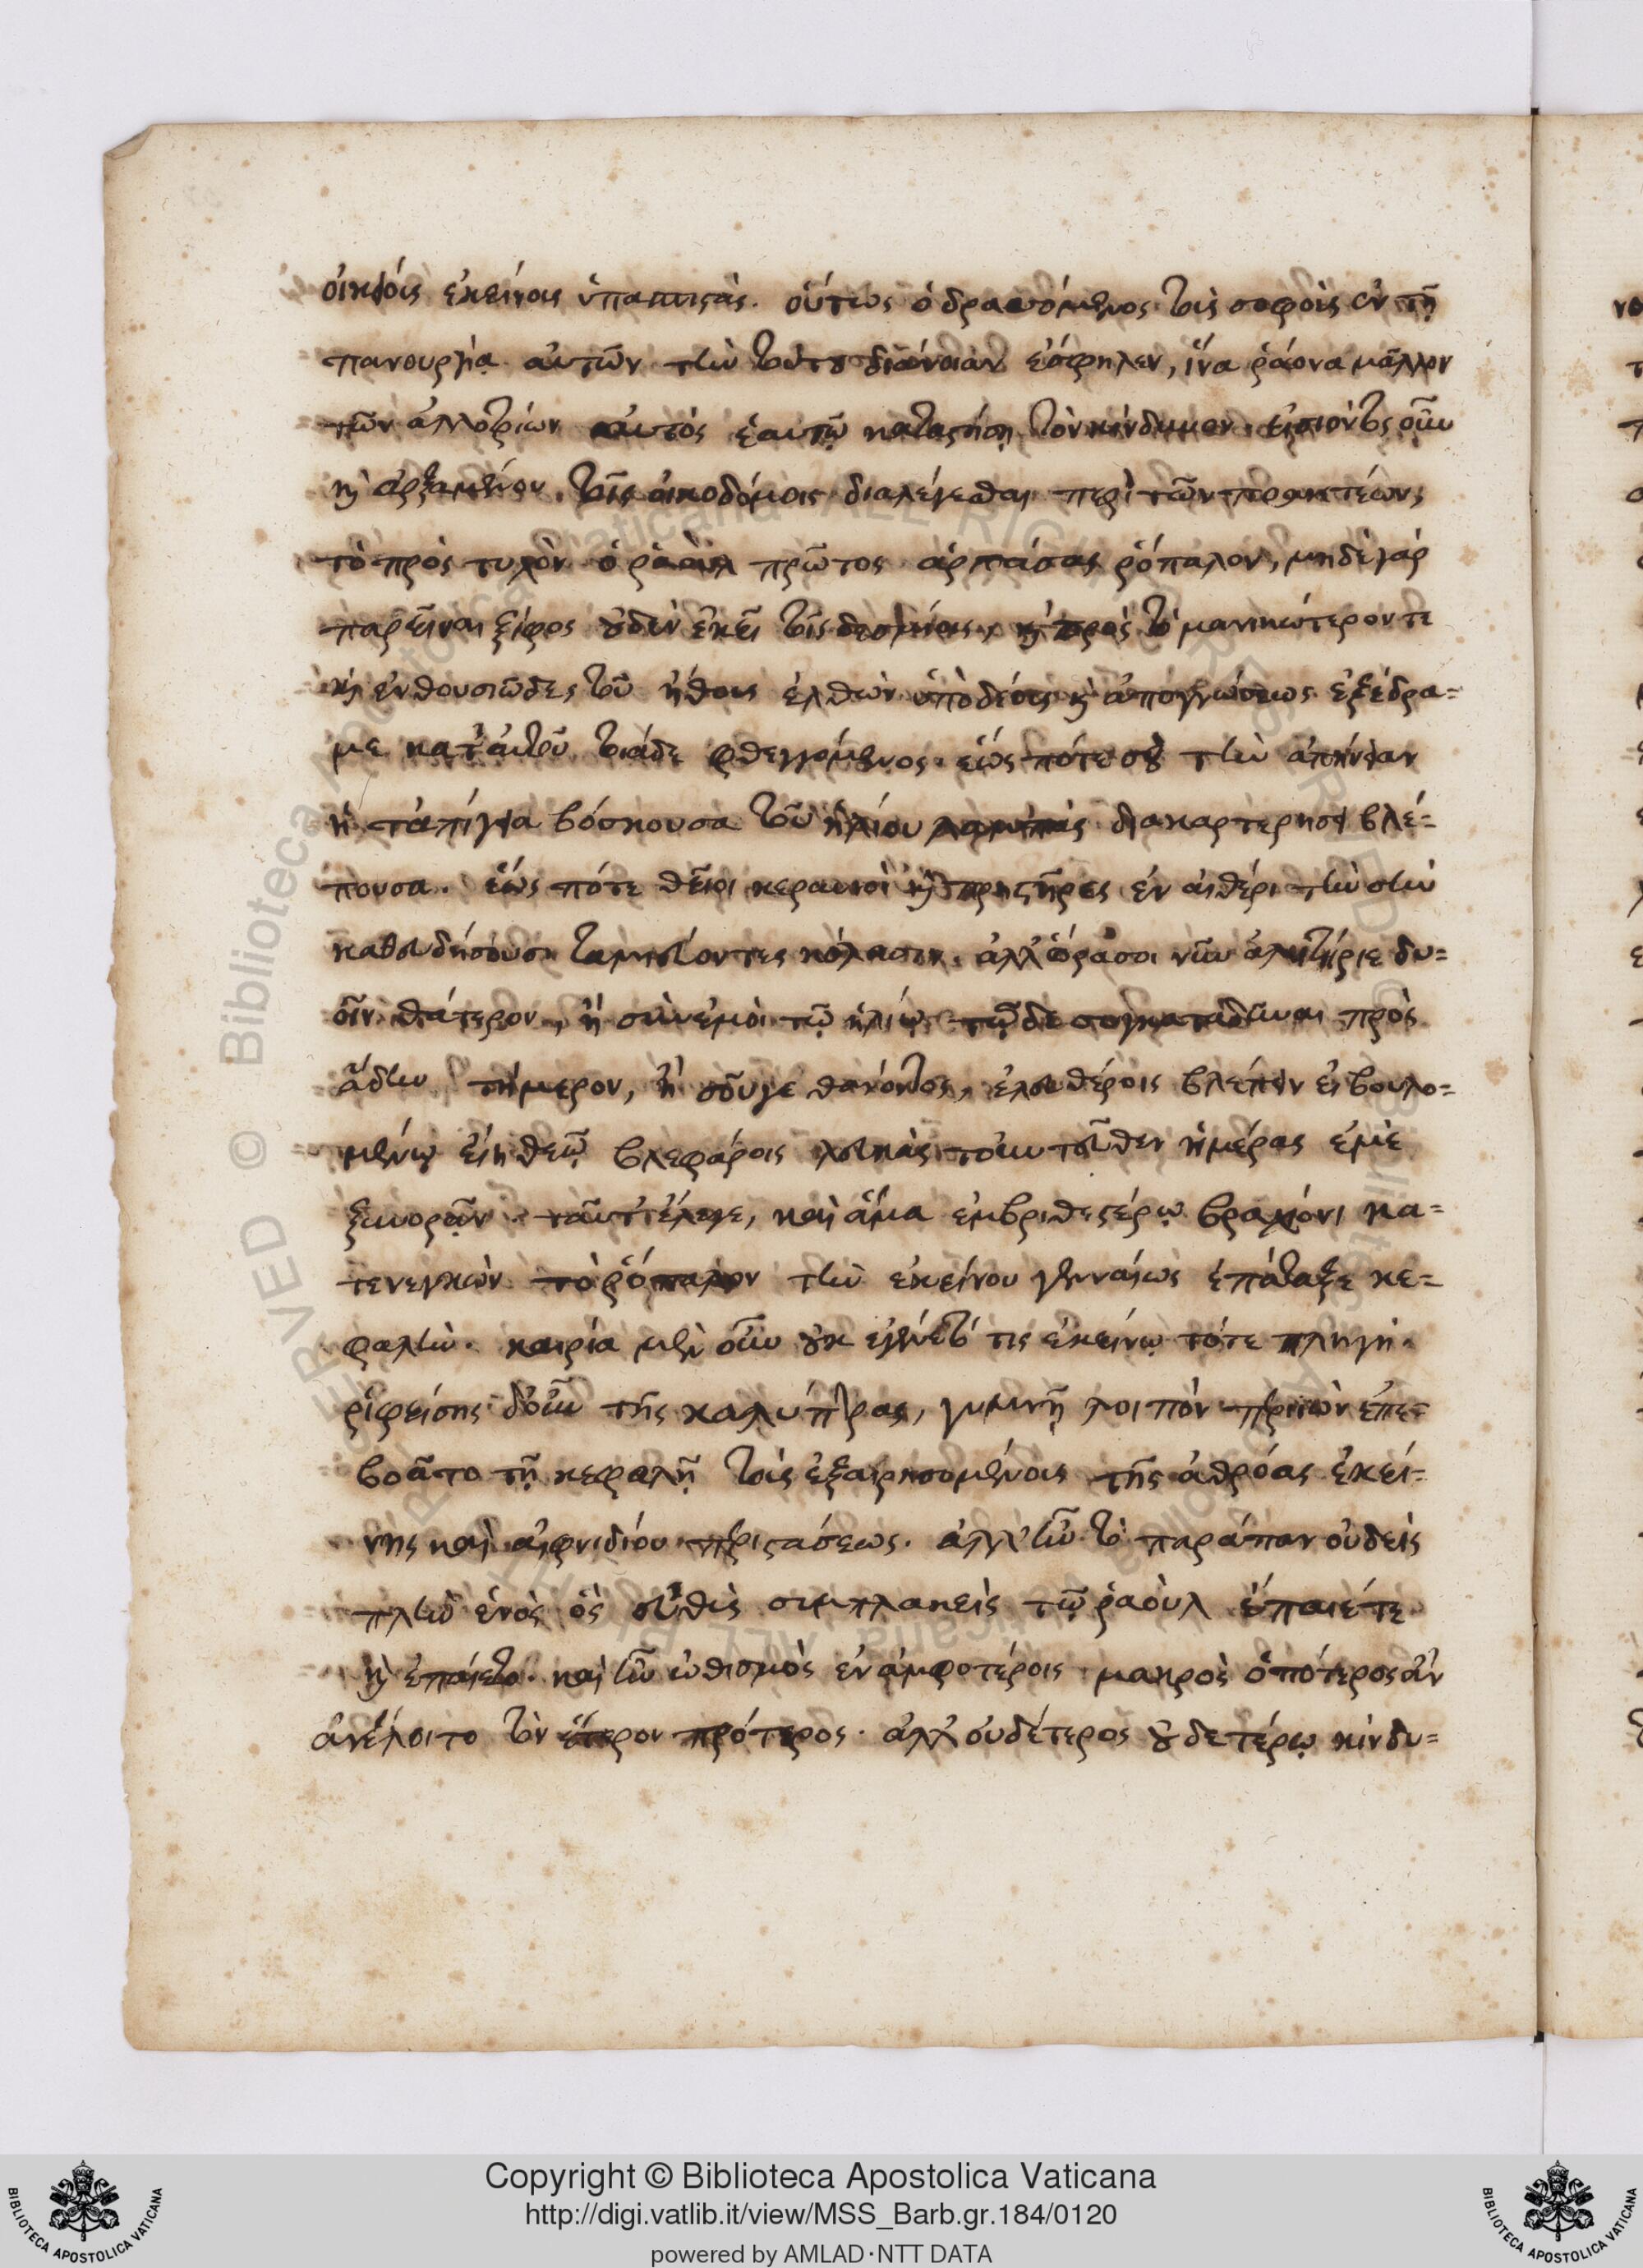 οἰκείοις ἐκείνοις ὑπαινιγμὰς. οὕτως ὁ δραττόμενος τοὺς σοφοὺς ἐν τῇ
πανουργίᾳ αὐτῶν τὴν τούτου διάνοιαν ἐσφηλεν, ἵνα ῥάονα μᾶλλον
τῶν ἀλλοτρίων αὐτὸς ἑαυτῷ καταστήσῃ τὸν κίνδυνον. εἰσιόντος οὖν
καὶ ἀρξαμένου τοῖς οἰκοδόμοις διαλέγεσθαι περὶ τῶν πρακτέων,
τὸ πρὸς τυχὸν ὁ ῥαοὺλ πρῶτος ἁρπάσας ῥόπαλον, μηδὲ γὰρ
παρεῖναι ξίφος οὐδὲν ἐκεῖ τοῖς δεσμίοις, καὶ πρὸς τὸ μανικώτερον τε
καὶ ἐνθουσιῶδες τοῦ ἤθους ἐλθὼν ὑπὸ δέους καὶ ἀπογνώσεως ἐξέδρα=
με κατ' αὐτοῦ τοιάδε φθεγγόμενος. ἕως πότε σου τὴν ἀπήνειαν
ἡ τὰ ἐπίγεια βόσκουσα τοῦ ἡλίου λαμπὰς διακαρτερήσει βλέ=
πουσα. ἕως πότε θεῖοι κεραυνοὶ καὶ πρηστῆρες ἐν αἰθέρι τὴν σὴν
καθευδήσουσι ταμιεύοντες κόλασιν. ἀλλ' ὅρα σοι νῦν ἀλιτήριε δυ=
οῖν θάτερον, ἢ σὺν ἐμοὶ τῷ ἡλίῳ τῷδε συγκαταδῦναι πρὸς
ᾅδην τήμερον, ἢ σοῦ γε θανόντος, ἐλευθέροις βλέπειν εἰ βουλο=
μένῳ εἴη θεῷ βλεφάροις λοιπὰς τὸ ἐντεῦθεν ἡμέρας ἐμὲ
ξυνορᾷν. ταῦτ' ἔλεγε, καὶ ἅμα ἐμβριθεστέρῳ βραχίονι κα=
τενεγκὼν τὸ ῥόπαλον τὴν ἐκείνου γενναίως ἐπάταξε κε=
φαλήν. καιρία μὲν οὖν οὐκ ἐγένετό τις ἐκείνῳ τότε πληγή.
ῥιφείσης δ' οὖν τῆς καλύπτρας, γυμνῇ λοιπὸν περιιὼν ἐπε=
βοᾶτο τῇ κεφαλῇ τοὺς ἐξαιρησομένους τῆς ἀθρόας ἐκεί=
νης καὶ αἰφνιδίου περιστάσεως. ἀλλ' ἦν τὸ παράπαν οὐδεὶς
πλὴν ἑνὸς ὃς εὐθὺς συμπλακεὶς τῷ ῥαοὺλ ἔπαιέ τε
καὶ ἐπαίετο. καὶ ἦν ὠθισμὸς ἐν ἀμφοτέροις μακρὸς ὁπότερος ἂν
ἀνέλοιτο τὸν ἕτερον πρότερος. ἀλλ' οὐδέτερος οὐδετέρῳ κίνδυ=
Copyright © Biblioteca Apostolica Vaticana
http://digi.vatlib.it/view/MSS_Barb.gr.184/0120
powered by AMLAD·NTT DATA